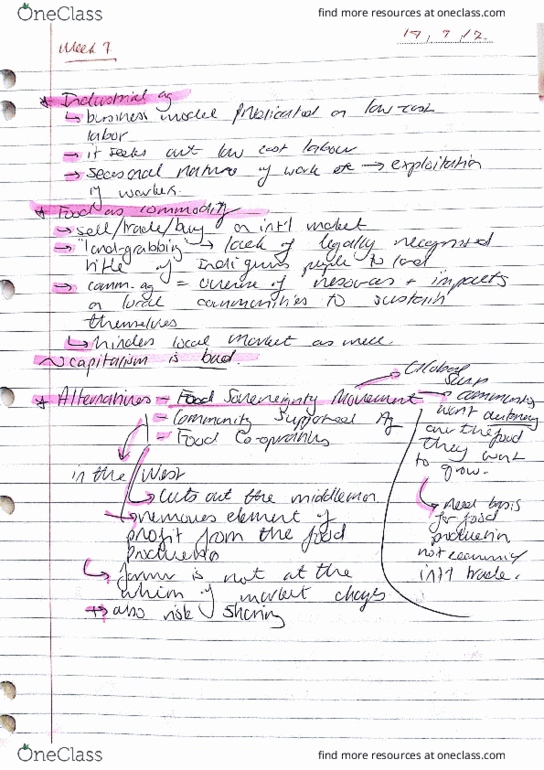 OneClass
find more resources at oneclass.com
Week 7
Industrial ag
↳ business model predicated on low cost
labor
→ it seeks out low cost labour
→ seasonal nature of work → exploitation
of workers
* Food as commodity
→ sell/trade/buy on int'l market
→ "land-grabbing" → lack of legally recognised
title of Indiginous people to land
→ comm. ag = overuse of resources + impacts
on local communities to sustain
themselves
↳ hinders local market as well.
~ capitalism is bad.
Global
South
* Alternatives - Food Sovereignty Movement → community
- Community Supported Ag
- Food Co-operatives
want autonomy
over the food
they want
to grow.
in the West
↳ cuts out the middleman
→ removes element of
profit from the food
↳ Need basis
for food
production
not
int'l trade.
↳ farmer is not at the
whim of market changes
→ also risk sharing
OneClass
find more resources at oneclass.com